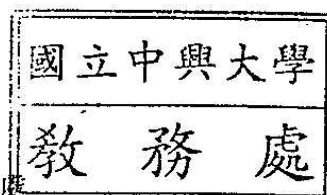 國立中興大學
教務處